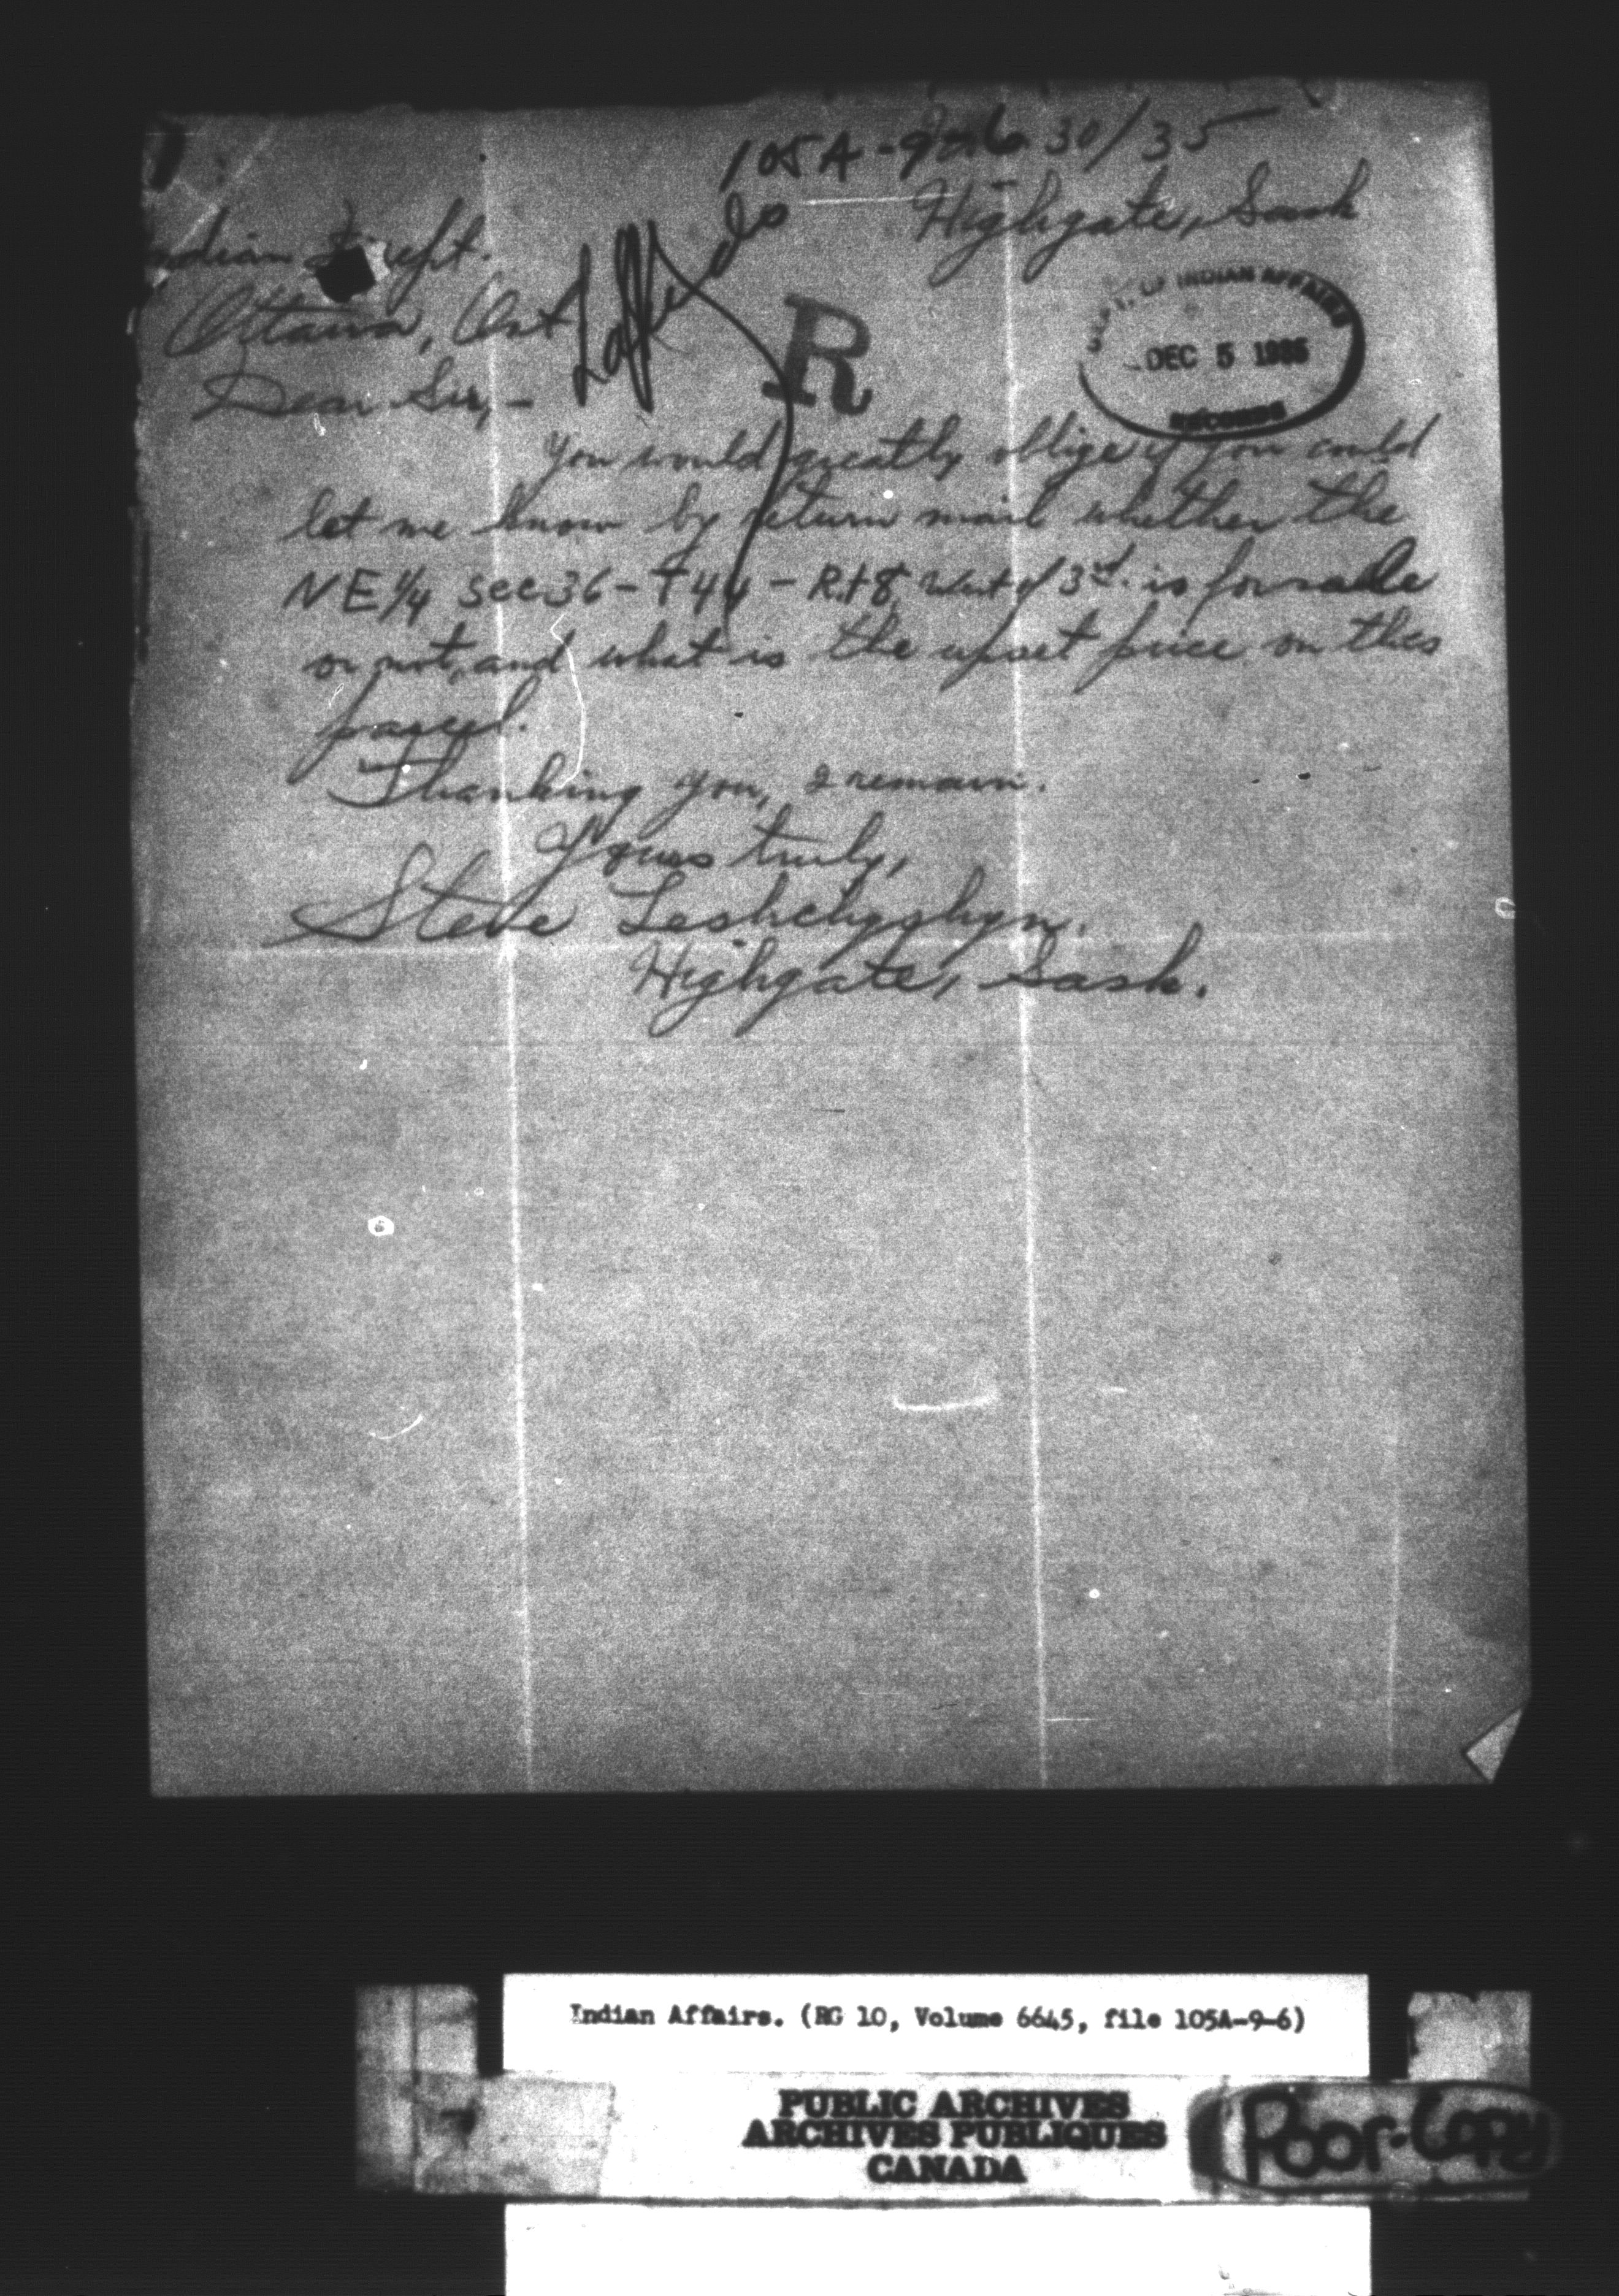 105A-9-6 30/35
Highgate, Sask
Indian Dept.
Ottawa, Ont
Dear Sir,-
R
DEPT. OF INDIAN AFFAIRS
DEC 5 1935
RECORDS
You would greatly oblige if you could
let me know by return mail whether the
NE 1/4 Sec 36 - T 44 - R. 18 West of 3rd. is for sale
or not, and what is the upset price on this
parcel.
Thanking you, I remain.
Yours truly,
Steve Leshchyshyn.
Highgate, Sask.
Indian Affairs. (RG 10, Volume 6645, file 105A-9-6)
PUBLIC ARCHIVES
ARCHIVES PUBLIQUES
CANADA
Poor-Copy